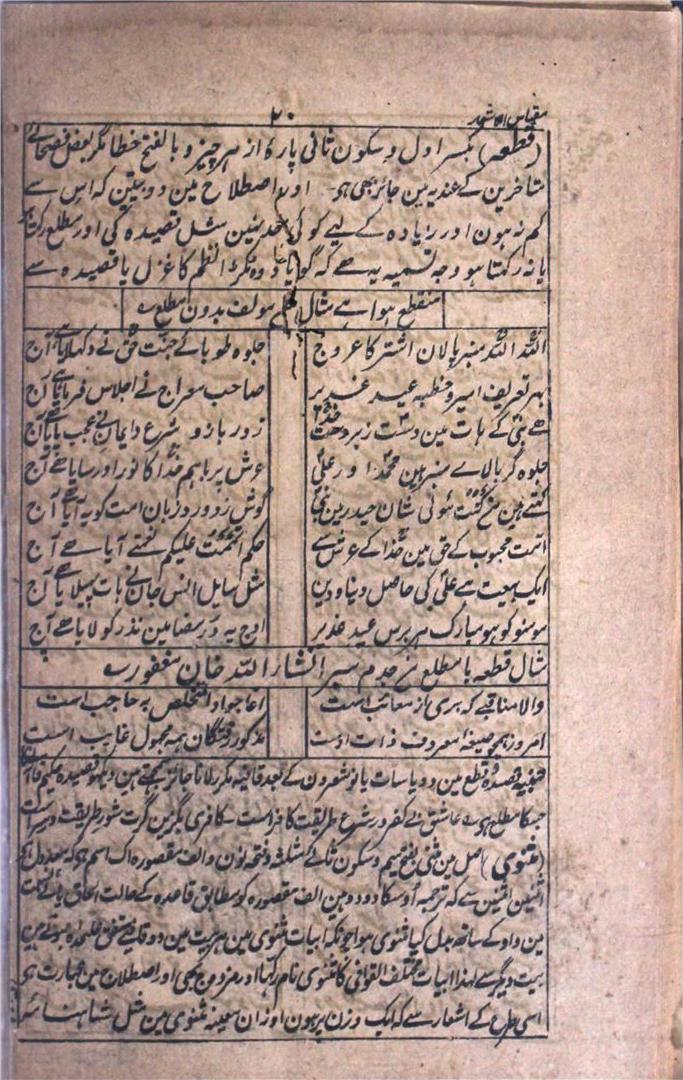 مقیاس الاشعار
۲۰
(قطعہ) بکسر اول و سکون ثانی پارہ از ہر چیز و بالفتح خطا مگر بعض فصحائے
متاخرین کے عندیہ مین جائز بھی ہو۔ اور اصطلاح مین دو بیتین کہ اس سے
کم نہ ہون اور زیادہ کے لیے کوئی حد نہین مثل قصیدہ کی اور مطلع رکھتا ہو
یا نہ رکھتا ہو وجہ تسمیہ یہ ہے کہ گویا وہ ٹکڑا نظم کا غزل یا قصیدہ سے
منقطع ہوا ہے مثال مولف بدون مطلع ے
اللہ اللہ منبر پالان اشتر کا عروج
جلوہ طوبا کے جنت حق نے دکھلایا ہے آج
بہر تعریف امیر و خطبہ عید غدیر
صاحب معراج نے اجلاس فرمایا ہے آج
ہے نبی کے ہات مین دست زبردست خدا
زور بازو شرع و ایمان نے عجب پایا آج
جلوہ گر بالاے منبر ہین محمد اور علی
عرش پر باہم خدا کا نور اور سایا ہے آج
کہتے ہین من کنت مولی شان حیدر مین نبی
گوش زد ورد زبان امت کو یہ آیا آج
اتممت محبوب کے حق مین خدا کے عرش سے
حکم اتممت علیکم نعمتی آیا ہے آج
ایک بیعت ہے علی کی حاصل دنیا و دین
مثل سایل انس جان نے ہات پھیلایا ہے آج
مومنو کو ہو مبارک ہر برس عید غدیر
اوج یہ در مضامین نذر کو لایا ہے آج
مثال قطعہ با مطلع مخدوم میر انشاء اللہ خان مغفور ے
والا مناقبے کہ بری از معائب است
آغا جواد المتخلص بہ حاجب است
امروز ہمچو صیغہ معروف ذات اوست
مذکور رفتگان ہمہ مجہول غایب است
قصیدہ و قطع مین دو یا سات یا نو شعرون کے بعد قافیہ مکرر لانا جائز سمجھتے ہین دیکھو قصیدہ حکیم قاآنی
جسکا مطلع ہے عاشق بے کفر در شرع طریقت کافر است۔ کافری بگزین گرت شور طریقت در سر است
(مثنوی) اصل مین مثنی بفتح میم و سکون ثائے مثلثہ و فتحہ نون و الف مقصورہ اک اسم ہو کہ معدول ہو
اثنین اثنین سے کہ ترجمہ اوسکا دو دو ہین الف مقصورہ کو مطابق قاعدہ کے حالت الحاق یائے نسبت
مین واو کے ساتھ بدل کیا مثنوی ہوا چونکہ ابیات مثنوی مین ہر بیت مین دو قافیے متفق علیحدہ ہوتے ہین
بیت دیگر سے لہذا ابیات مختلف القوافی کا مثنوی نام رکھا اور مزدوج بھی اور اصطلاح مین عبارت ہو
اسی طرح کے اشعار سے کہ ایک وزن پر ہون اوزان معینہ مثنوی مین مثل شاہنامہ